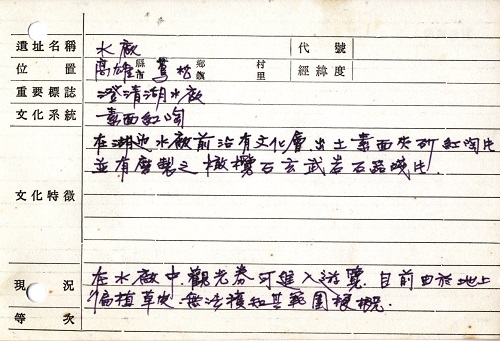 遺址名稱 水廠 代號
位置 高雄縣市 鳥松鄉鎮 村里 經緯度
重要標誌 澄清湖水廠
文化系統 素面紅陶
在湖池水廠前沿有文化層出土素面夾砂紅陶片
文化特徵 並有磨製之橄欖石玄武岩石器殘片.
現況 在水廠中.觀光券可進入遊覽.目前由於地上
徧植草皮無法獲知其範圍梗概.
等次